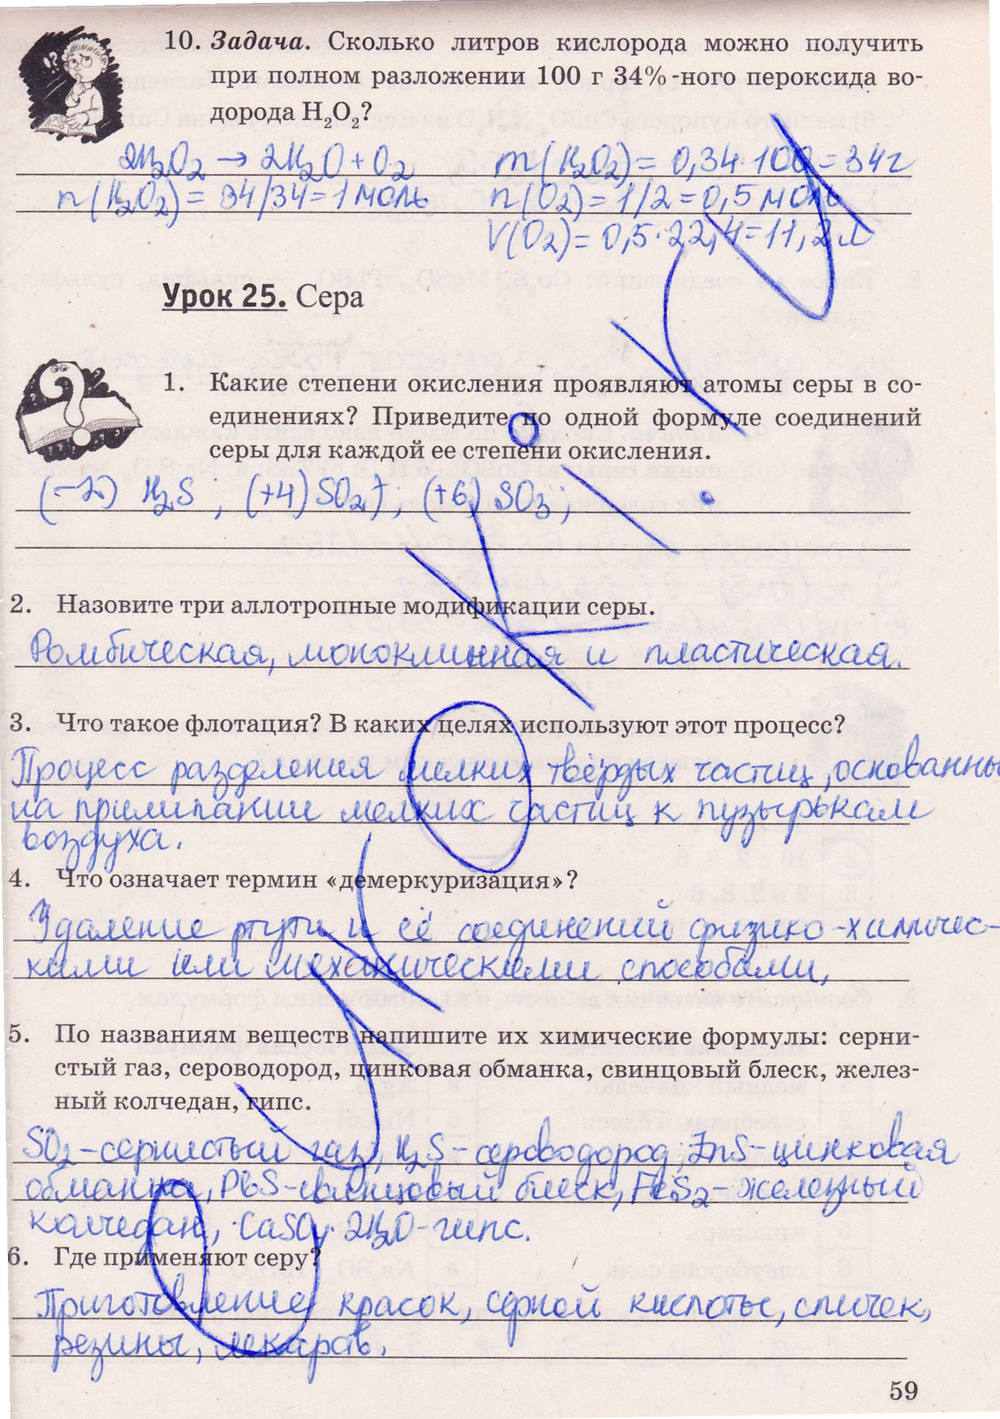 10. Задача. Сколько литров кислорода можно получить
при полном разложении 100 г 34%-ного пероксида во-
дорода H₂O₂?
2H₂O₂ → 2H₂O + O₂ m(H₂O₂) = 0,34·100 = 34г
n(H₂O₂) = 34/34 = 1 моль n(O₂) = 1/2 = 0,5 моль
V(O₂) = 0,5·22,4 = 11,2 л
Урок 25. Сера
1. Какие степени окисления проявляют атомы серы в со-
единениях? Приведите по одной формуле соединений
серы для каждой ее степени окисления.
(-2) H₂S; (+4) SO₂↑, (+6) SO₃;
2. Назовите три аллотропные модификации серы.
Ромбическая, моноклинная и пластическая.
3. Что такое флотация? В каких целях используют этот процесс?
Процесс разделения мелких твёрдых частиц, основанный
на прилипании мелких частиц к пузырькам
воздуха.
4. Что означает термин «демеркуризация»?
Удаление ртути и её соединений физико-химичес-
кими или механическими способами,
5. По названиям веществ напишите их химические формулы: серни-
стый газ, сероводород, цинковая обманка, свинцовый блеск, желез-
ный колчедан, гипс.
SO₂-сернистый газ, H₂S-сероводород, ZnS-цинковая
обманка, PbS-свинцовый блеск, FeS₂-железный
колчедан, CaSO₄·2H₂O-гипс.
6. Где применяют серу?
Приготовление красок, серной кислоты, спичек,
резины, лекарств.
59